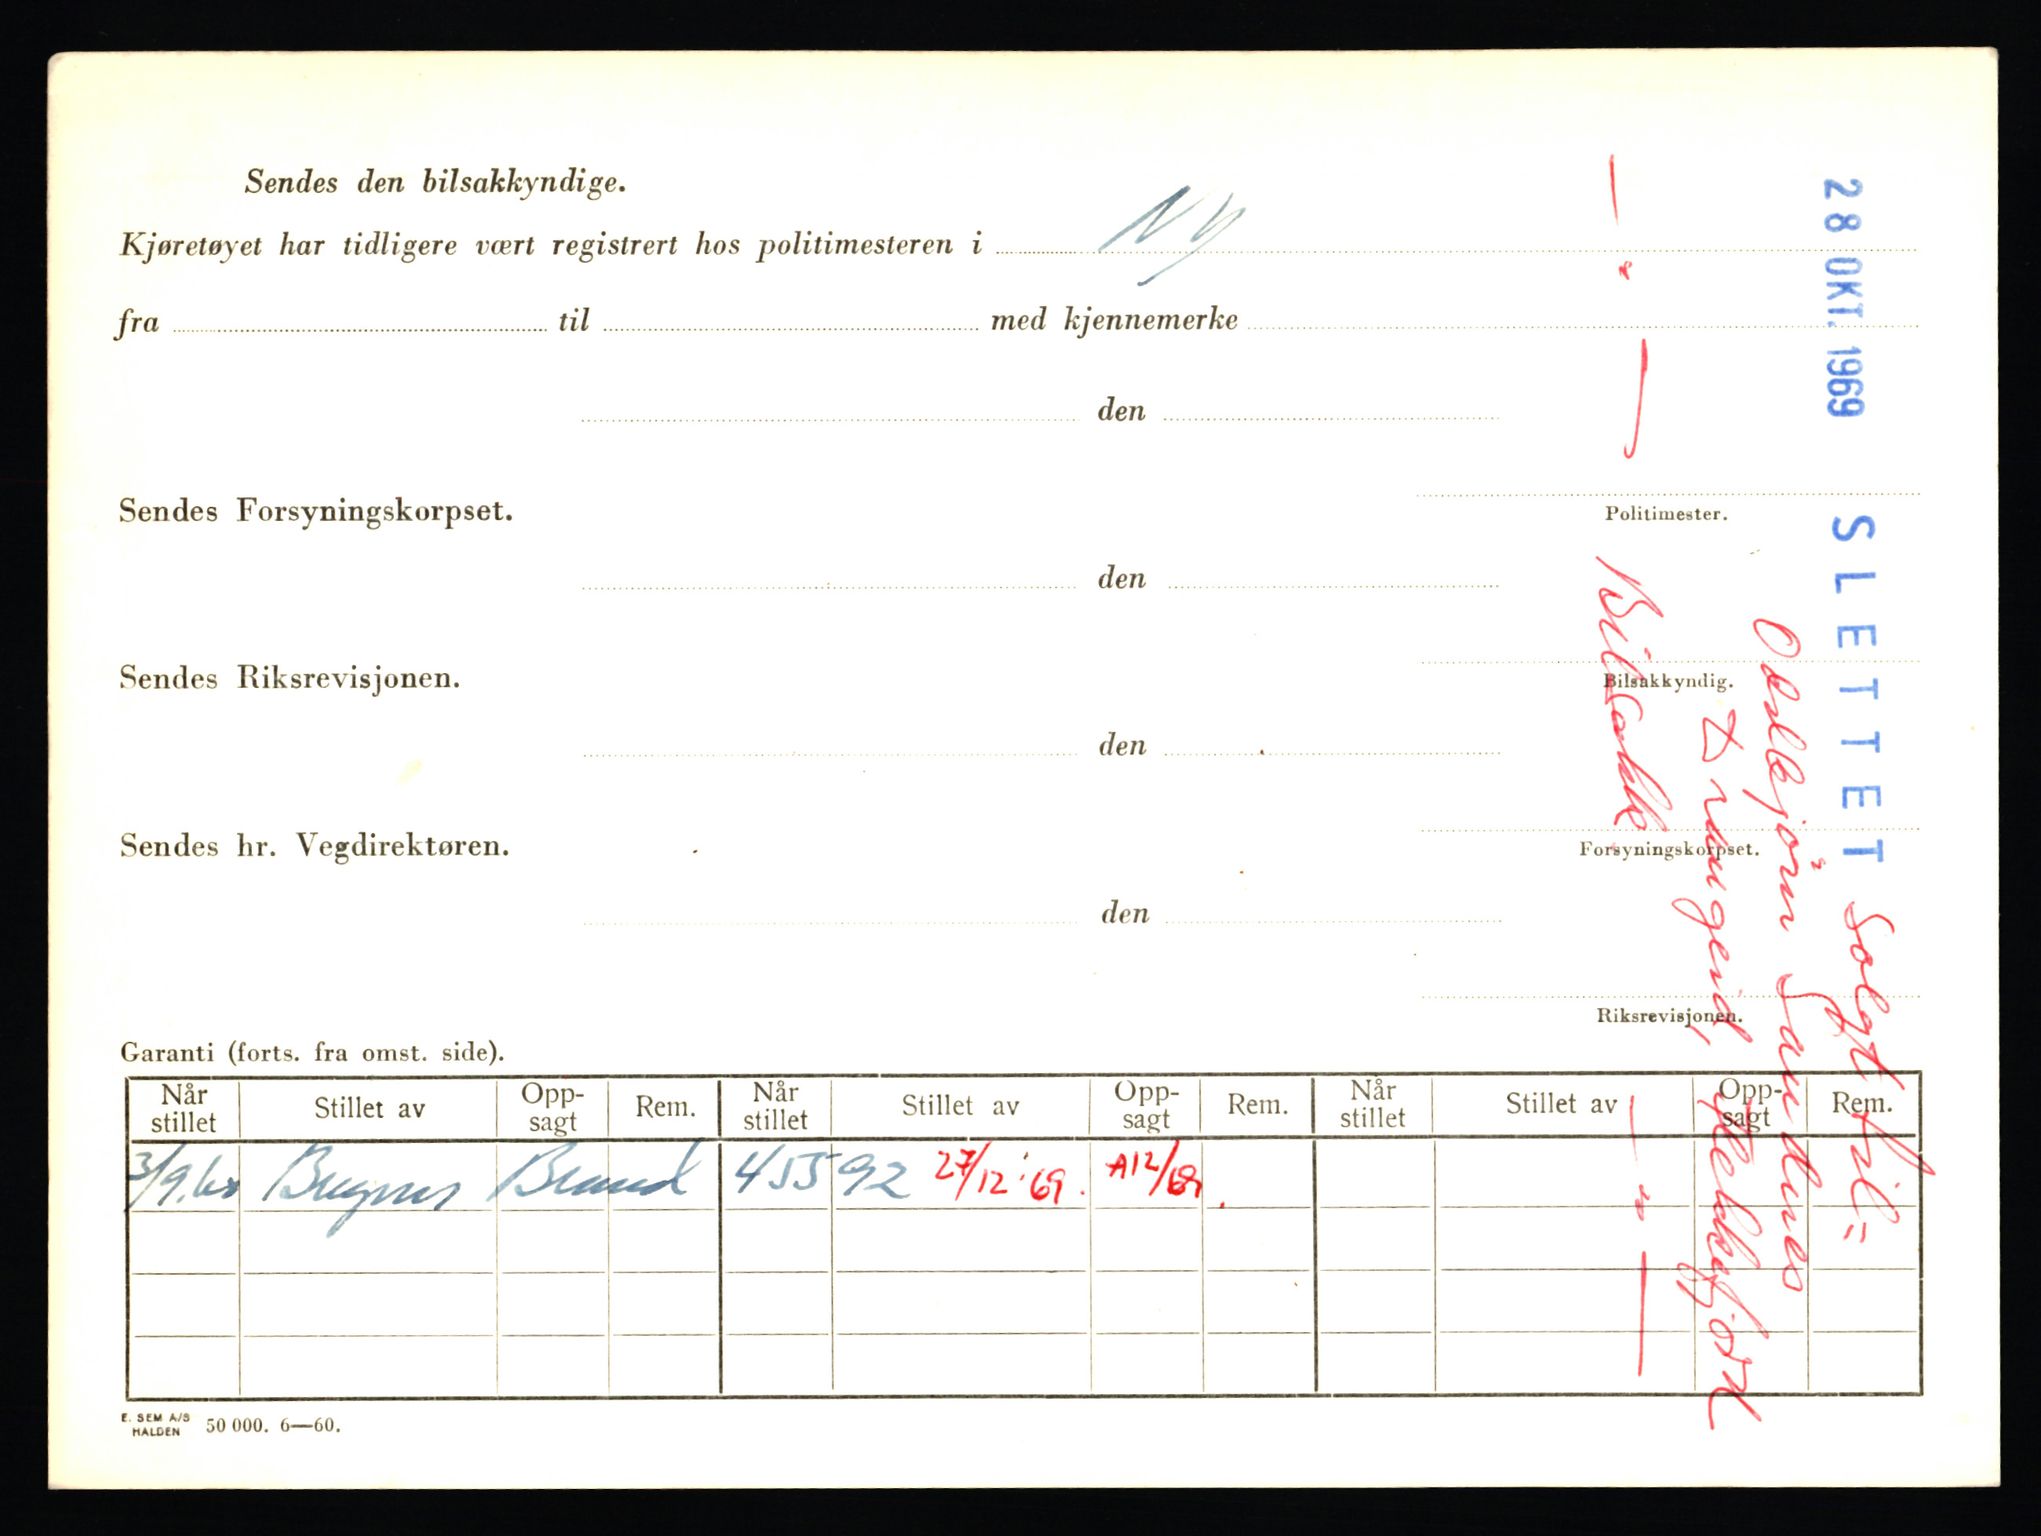 Sendes den bilsakkyndige.
Kjøretøyet har tidligere vært registrert hos politimesteren i Ny
fra til med kjennemerke
den
Politimester.
Sendes Forsyningskorpset.
den
Bilsakkyndig.
Sendes Riksrevisjonen.
den
Forsyningskorpset.
Sendes hr. Vegdirektøren.
den
Riksrevisjonen.
Garanti (forts. fra omst. side).
Når stillet Stillet av Opp- sagt Rem. Når stillet Stillet av Opp- sagt Rem. Når stillet Stillet av Opp- sagt Rem.
3/9.60 Brand 45592 27/12 '69. A12/69.
E. SEM A/S
HALDEN
50 000. 6—60.
28 OKT. 1969 SLETTET Solgt til =
Oddbjørn Sandnes
Drangeid,
Flekkefjord
— " — Bilsakk — " —